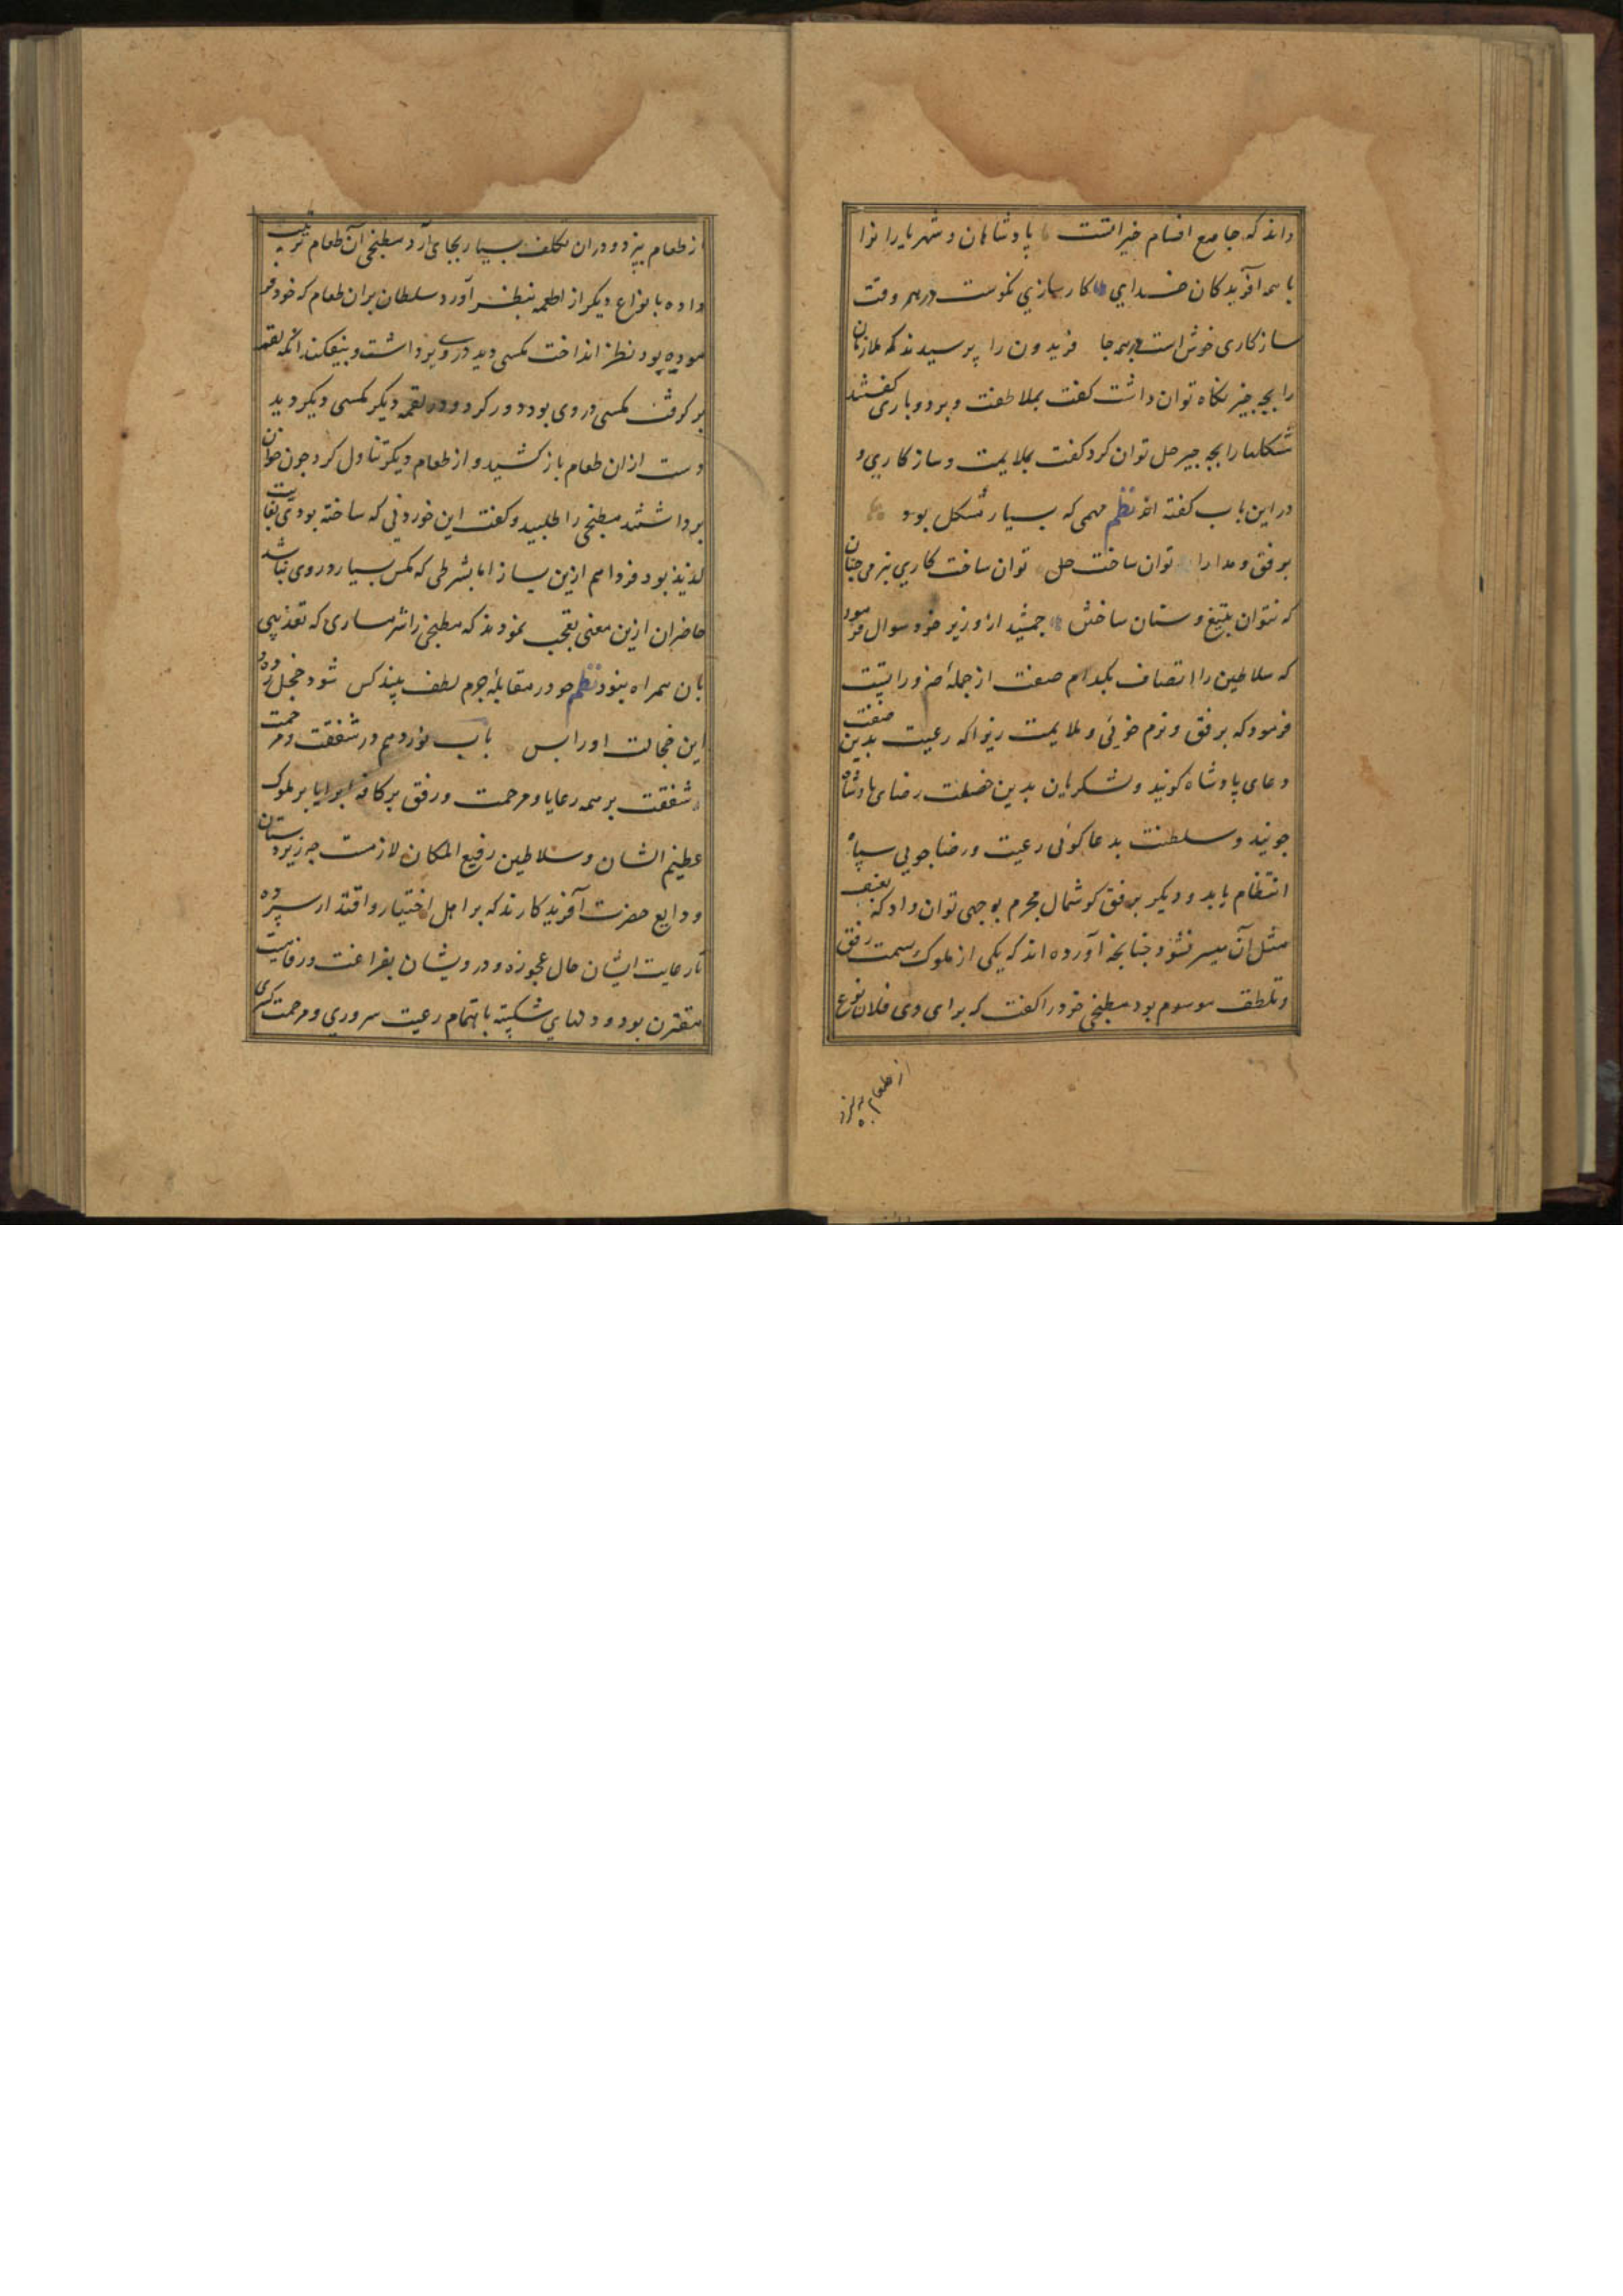 داند که جامع اقسام خیراتست پادشاهان و شهریارانرا
با همه آفریدکان خدایی کارسازی نکوست در همه وقت
سازکاری خوش است در همه جا فریدون را پرسیدند که ملازمان
را بچه چیز نکاه توان داشت کفت بملاطفت و بردوباری کفتند
مشکلها را بچه چیز حل توان کرد کفت بملایمت و سازکاری و
در این باب کفته اند نظم مهمی که بسیار مشکل بود
برفق و مدارا توان ساخت حل توان ساخت کاری بنرمی چنان
که نتوان بتیغ و سنان ساختن جمشید از وزیر خود سوال فرمود
که سلاطین را اتصاف بکدام صفت از جمله ضروراتیست
فرمود که برفق و نرم خوئی و ملایمت زیرا که رعیت بدین صفت
دعای پادشاه کویند و لشکریان بدین خصلت رضای پادشاه
جویند و سلطنت بدعا کوئی رعیت و رضاجویی سپاه
انتظام یابد و دیکر برفق کوشمال مجرم بوجهی توان داد که بعنف
مثل آن میسر نشود چنانچه آورده اند که یکی از ملوک بسمت رفق
و تلطف موسوم بود مطبخی خود را کفت که برای وی فلان نوع
از طعام بپزد
از طعام بپزد و دران تکلف بسیار بجای آرد مطبخی آن طعام ترتیب
داده با نواع دیکر از اطعمه بنظر آورد سلطان بران طعام که خود فر
موده بود نظر انداخت مکسی دید در وی برداشت و بیفکند انکه لقمه
برکرفت مکسی در وی بود دور کرد و در لقمه دیکر مکسی دیکر دید
دست ازان طعام باز کشید و از طعام دیکر تناول کرد چون خوان
برداشتند مطبخی را طلبید و کفت این خوردنی که ساخته بودی بغایت
لذیذ بود فردا هم ازین بساز اما بشرطی که مکس بسیار در وی نباشد
حاضران ازین معنی تعجب نمودند که مطبخی را شرمساری که تعذیبی
بان همراه نبود نظم چو در مقابله جرم لطف بیند کس شود خجل زده و
این خجالت اورا بس باب نوزدهم در شفقت و مرحمت
شفقت بر همه رعایا و مرحمت و رفق بر کافه برایا بر ملوک
عظیم الشان و سلاطین رفیع المکان لازمست چه زیردستان
ودایع حضرت آفریدکارند که بر اهل اختیار و اقتدار سپرده
تا رعایت ایشان حال عجوزه و درویشان بفراغت و رفاهیت
مقترن بود و دلهای شکسته باهتمام رعیت سروری و مرحمت کستری